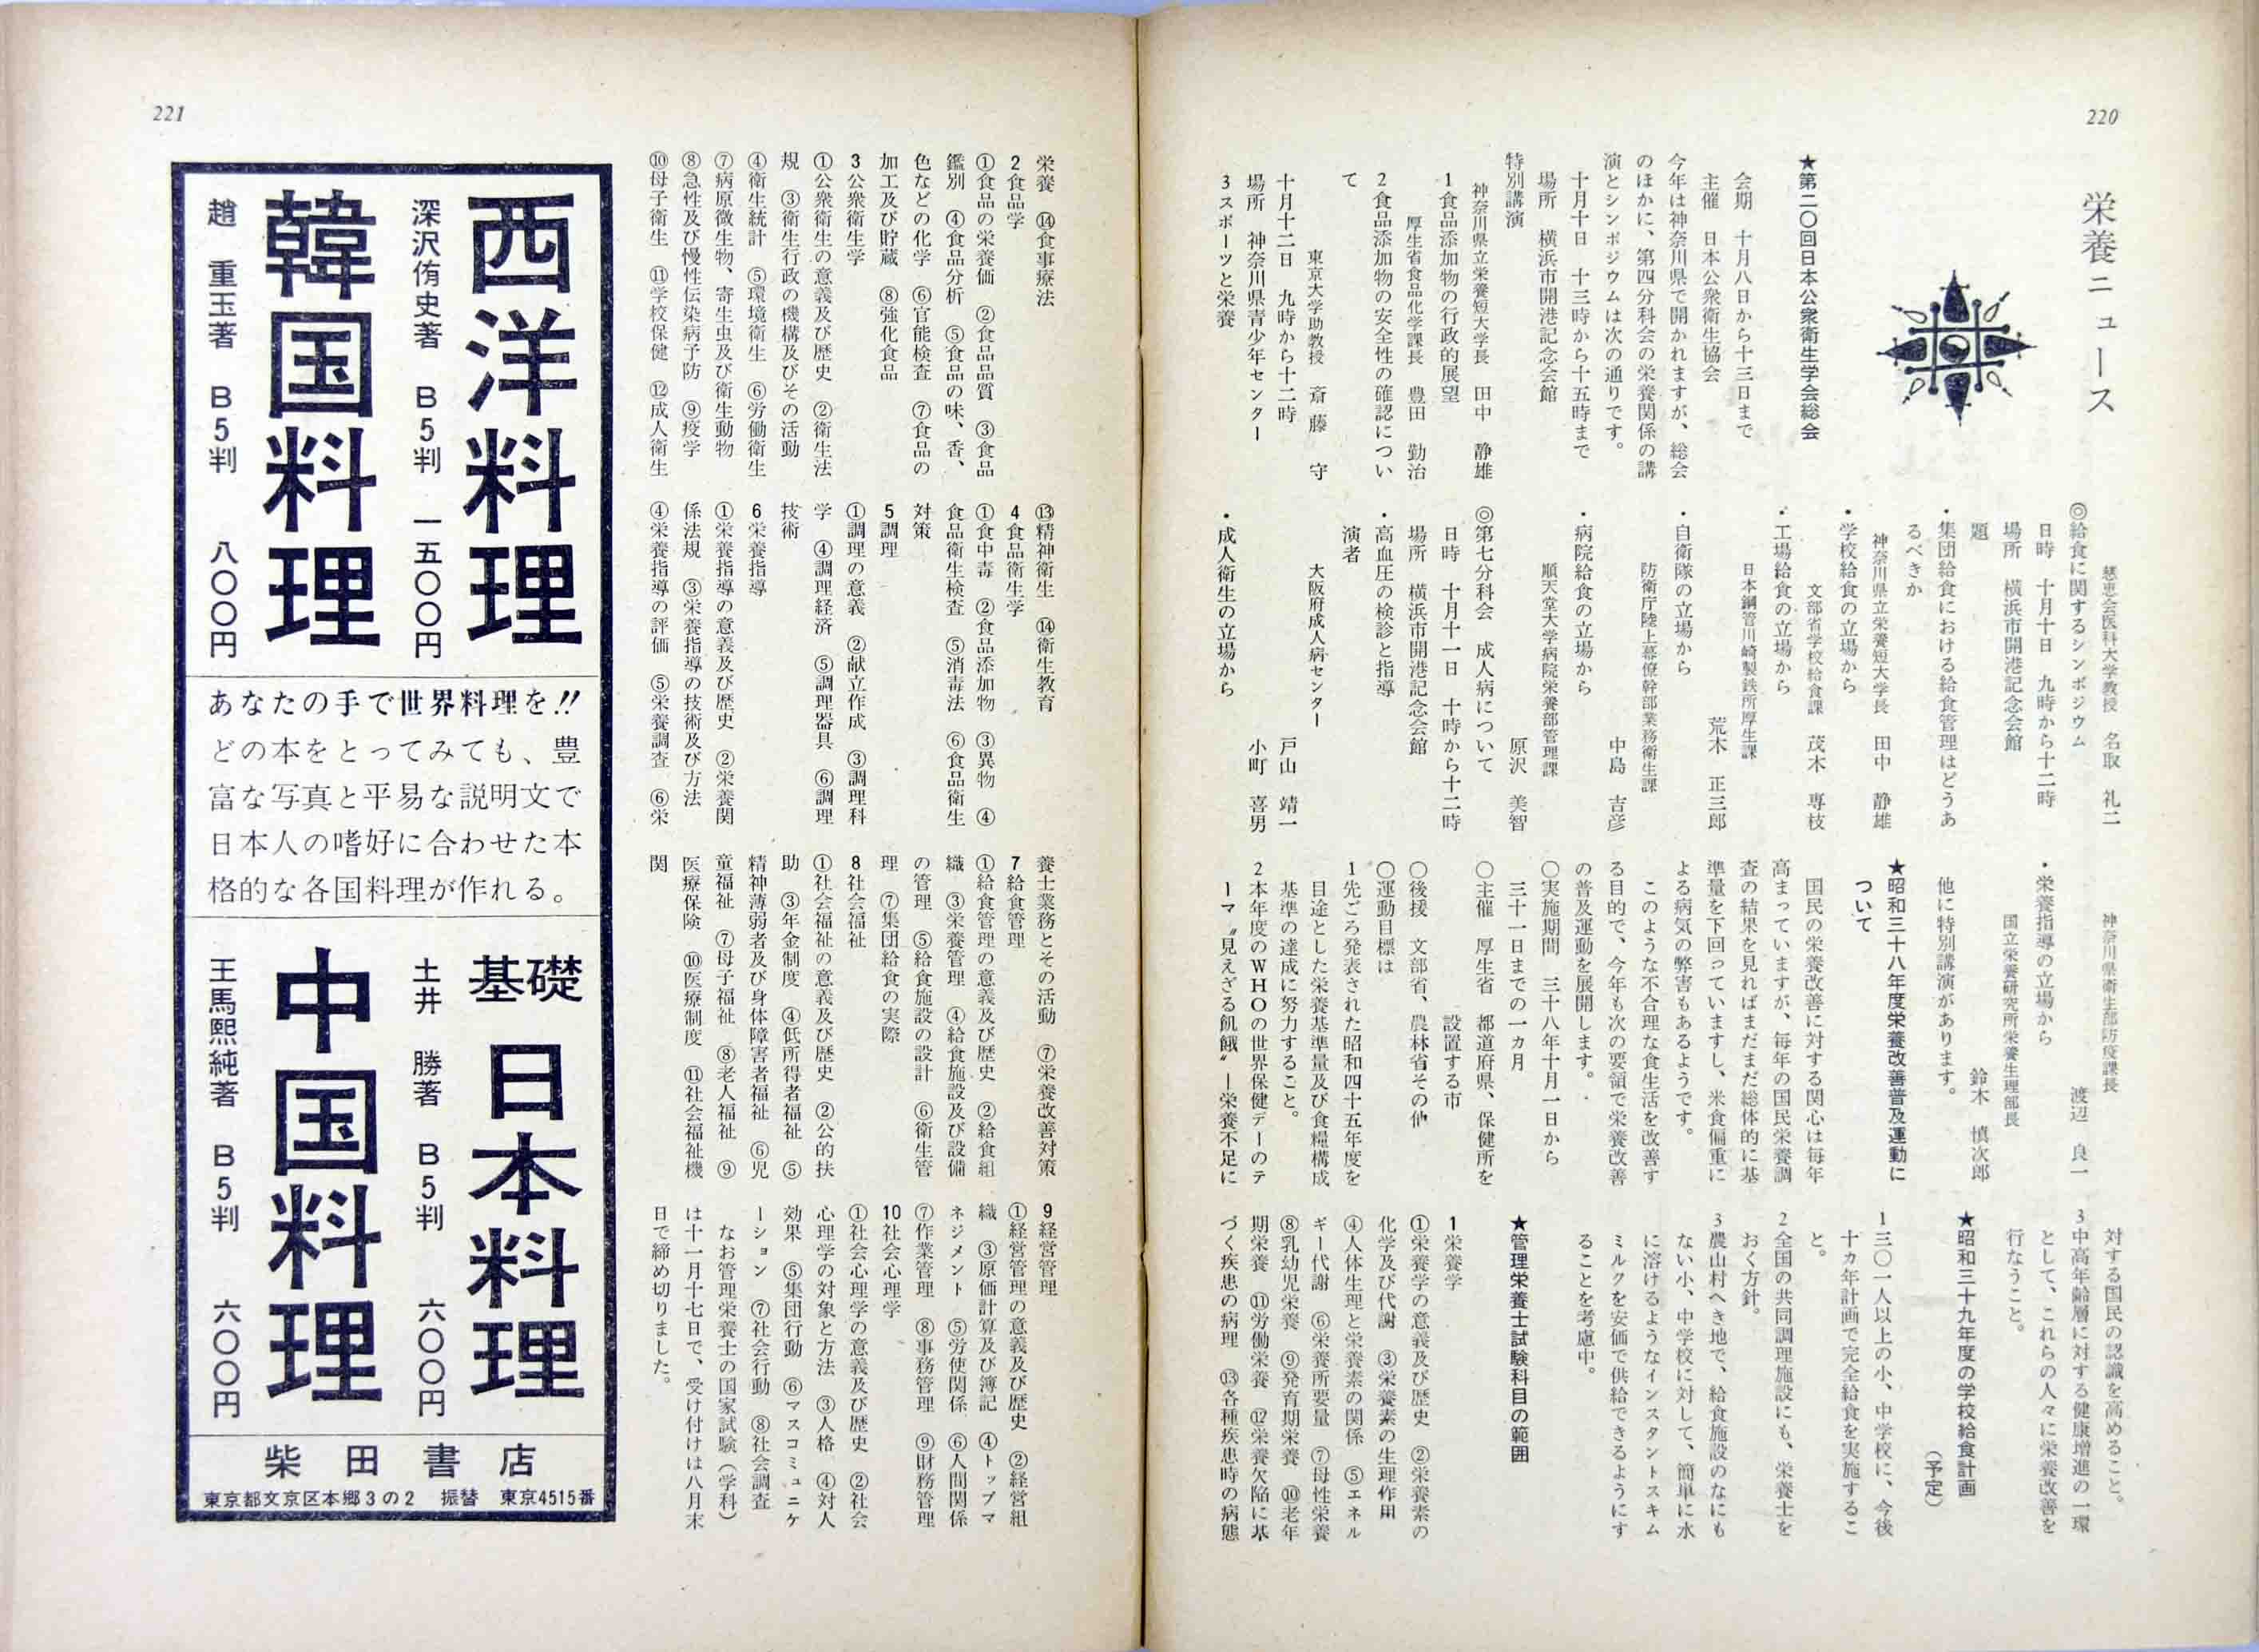 220
栄養ニュース
★第二〇回日本公衆衛生学会総会
会期　十月八日から十三日まで
主催　日本公衆衛生協会
今年は神奈川県で開かれますが、総会
のほかに、第四分科会の栄養関係の講
演とシンポジウムは次の通りです。
十月十日　十三時から十五時まで
場所　横浜市開港記念会館
特別講演
神奈川県立栄養短大学長　田中　静雄
1食品添加物の行政的展望
厚生省食品化学課長　豊田　勤治
2食品添加物の安全性の確認につい
て
東京大学助教授　斎藤　守
十月十二日　九時から十二時
場所　神奈川県青少年センター
3スポーツと栄養
慈恵会医科大学教授　名取　礼二
◎給食に関するシンポジウム
日時　十月十日　九時から十二時
場所　横浜市開港記念会館
題
・集団給食における給食管理はどうあ
るべきか
神奈川県立栄養短大学長　田中　静雄
・学校給食の立場から
文部省学校給食課　茂木　専枝
・工場給食の立場から
日本鋼管川崎製鉄所厚生課
荒木　正三郎
・自衛隊の立場から
防衛庁陸上幕僚幹部業務衛生課
中島　吉彦
・病院給食の立場から
順天堂大学病院栄養部管理課
原沢　美智
◎第七分科会　成人病について
日時　十月十一日　十時から十二時
場所　横浜市開港記念会館
・高血圧の検診と指導
演者
大阪府成人病センター
戸山　靖一
小町　喜男
・成人衛生の立場から
神奈川県衛生部防疫課長
渡辺　良一
・栄養指導の立場から
国立栄養研究所栄養生理部長
鈴木　慎次郎
他に特別講演があります。
★昭和三十八年度栄養改善普及運動に
ついて
国民の栄養改善に対する関心は毎年
高まっていますが、毎年の国民栄養調
査の結果を見ればまだまだ総体的に基
準量を下回っていますし、米食偏重に
よる病気の弊害もあるようです。
このような不合理な食生活を改善す
る目的で、今年も次の要領で栄養改善
の普及運動を展開します。
○実施期間　三十八年十月一日から
三十一日までの一カ月
○主催　厚生省　都道府県、保健所を
設置する市
○後援　文部省、農林省その他
○運動目標は
1先ごろ発表された昭和四十五年度を
目途とした栄養基準量及び食糧構成
基準の達成に努力すること。
2本年度のWHOの世界保健デーのテ
ーマ〝見えざる飢餓〟―栄養不足に
対する国民の認識を高めること。
3中高年齢層に対する健康増進の一環
として、これらの人々に栄養改善を
行なうこと。
★昭和三十九年度の学校給食計画
（予定）
1三〇一人以上の小、中学校に、今後
十カ年計画で完全給食を実施するこ
と。
2全国の共同調理施設にも、栄養士を
おく方針。
3農山村へき地で、給食施設のなにも
ない小、中学校に対して、簡単に水
に溶けるようなインスタントスキム
ミルクを安価で供給できるようにす
ることを考慮中。
★管理栄養士試験科目の範囲
1栄養学
①栄養学の意義及び歴史　②栄養素の
化学及び代謝　③栄養素の生理作用
④人体生理と栄養素の関係　⑤エネル
ギー代謝　⑥栄養所要量　⑦母性栄養
⑧乳幼児栄養　⑨発育期栄養　⑩老年
期栄養　⑪労働栄養　⑫栄養欠陥に基
づく疾患の病理　⑬各種疾患時の病態
221
栄養　⑭食事療法
2食品学
①食品の栄養価　②食品品質　③食品
鑑別　④食品分析　⑤食品の味、香、
色などの化学　⑥官能検査　⑦食品の
加工及び貯蔵　⑧強化食品
3公衆衛生学
①公衆衛生の意義及び歴史　②衛生法
規　③衛生行政の機構及びその活動
④衛生統計　⑤環境衛生　⑥労働衛生
⑦病原微生物、寄生虫及び衛生動物
⑧急性及び慢性伝染病予防　⑨疫学
⑩母子衛生　⑪学校保健　⑫成人衛生
⑬精神衛生　⑭衛生教育
4食品衛生学
①食中毒　②食品添加物　③異物　④
食品衛生検査　⑤消毒法　⑥食品衛生
対策
5調理
①調理の意義　②献立作成　③調理科
学　④調理経済　⑤調理器具　⑥調理
技術
6栄養指導
①栄養指導の意義及び歴史　②栄養関
係法規　③栄養指導の技術及び方法
④栄養指導の評価　⑤栄養調査　⑥栄
養士業務とその活動　⑦栄養改善対策
7給食管理
①給食管理の意義及び歴史　②給食組
織　③栄養管理　④給食施設及び設備
の管理　⑤給食施設の設計　⑥衛生管
理　⑦集団給食の実際
8社会福祉
①社会福祉の意義及び歴史　②公的扶
助　③年金制度　④低所得者福祉　⑤
精神薄弱者及び身体障害者福祉　⑥児
童福祉　⑦母子福祉　⑧老人福祉　⑨
医療保険　⑩医療制度　⑪社会福祉機
関
9経営管理
①経営管理の意義及び歴史　②経営組
織　③原価計算及び簿記　④トップマ
ネジメント　⑤労使関係　⑥人間関係
⑦作業管理　⑧事務管理　⑨財務管理
10社会心理学
①社会心理学の意義及び歴史　②社会
心理学の対象と方法　③人格　④対人
効果　⑤集団行動　⑥マスコミュニケ
ーション　⑦社会行動　⑧社会調査
なお管理栄養士の国家試験（学科）
は十一月十七日で、受け付けは八月末
日で締め切りました。
西洋料理
深沢侑史著　B5判　一五〇〇円
韓国料理
趙　重玉著　B5判　八〇〇円
あなたの手で世界料理を!!
どの本をとってみても、豊
富な写真と平易な説明文で
日本人の嗜好に合わせた本
格的な各国料理が作れる。
基礎　日本料理
土井　勝著　B5判　六〇〇円
中国料理
王馬熙純著　B5判　六〇〇円
柴田書店
東京都文京区本郷3の2　振替　東京4515番